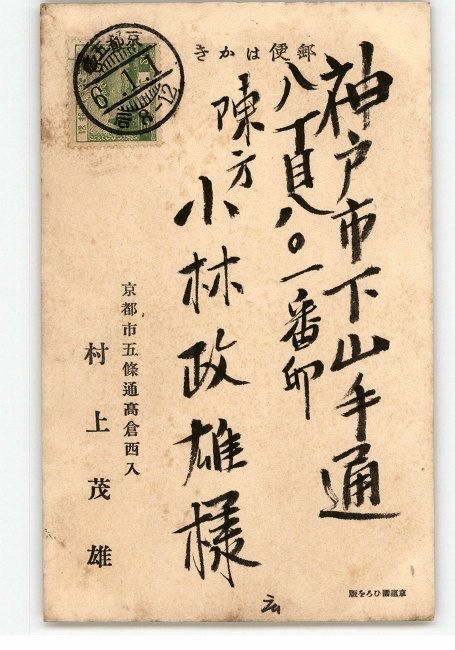 郵便はかき
神戸市下山手通
八丁目八〇一番
陳方
小林政雄様
京都市五條通高倉西入
村上茂雄
6.1.1
前8-12